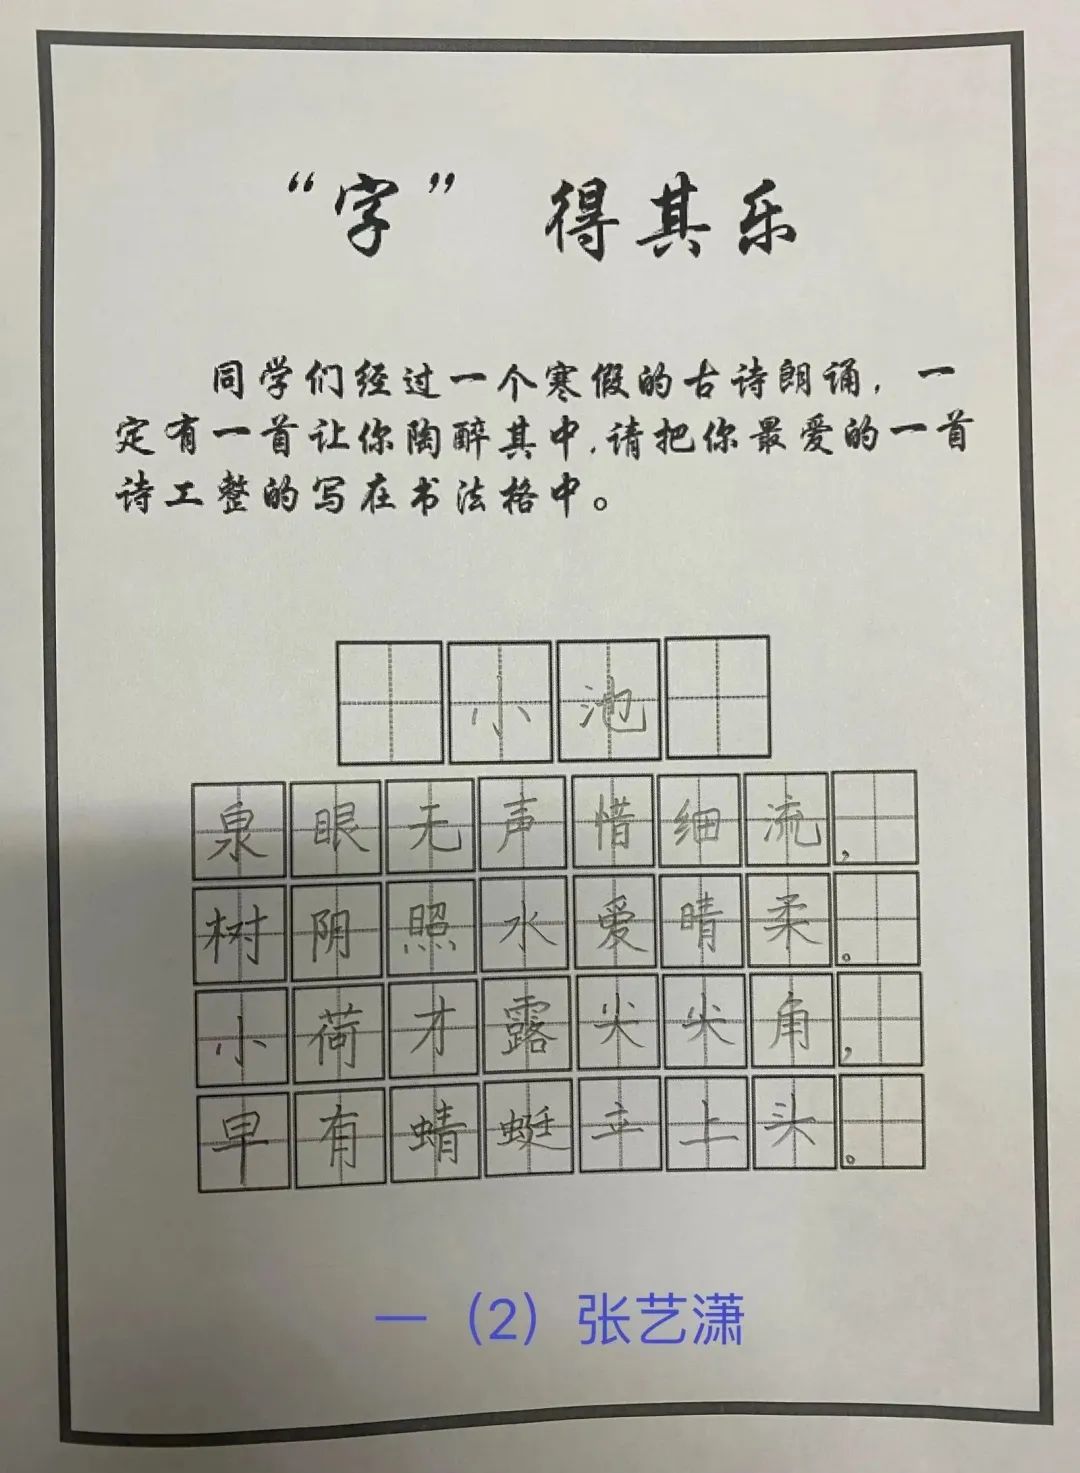 “字” 得其乐
同学们经过一个寒假的古诗朗诵，一
定有一首让你陶醉其中,请把你最爱的一首
诗工整的写在书法格中。
小池
泉眼无声惜细流，
树阴照水爱晴柔。
小荷才露尖尖角，
早有蜻蜓立上头。
一（2）张艺潇